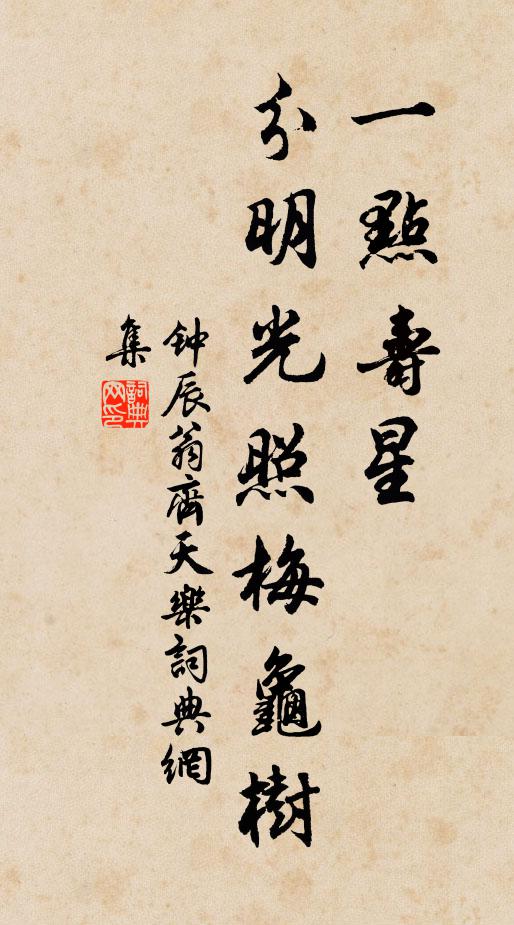 一點壽星
分明光照梅龜樹
钟辰翁齊天樂詞典網
集
詞典
网印